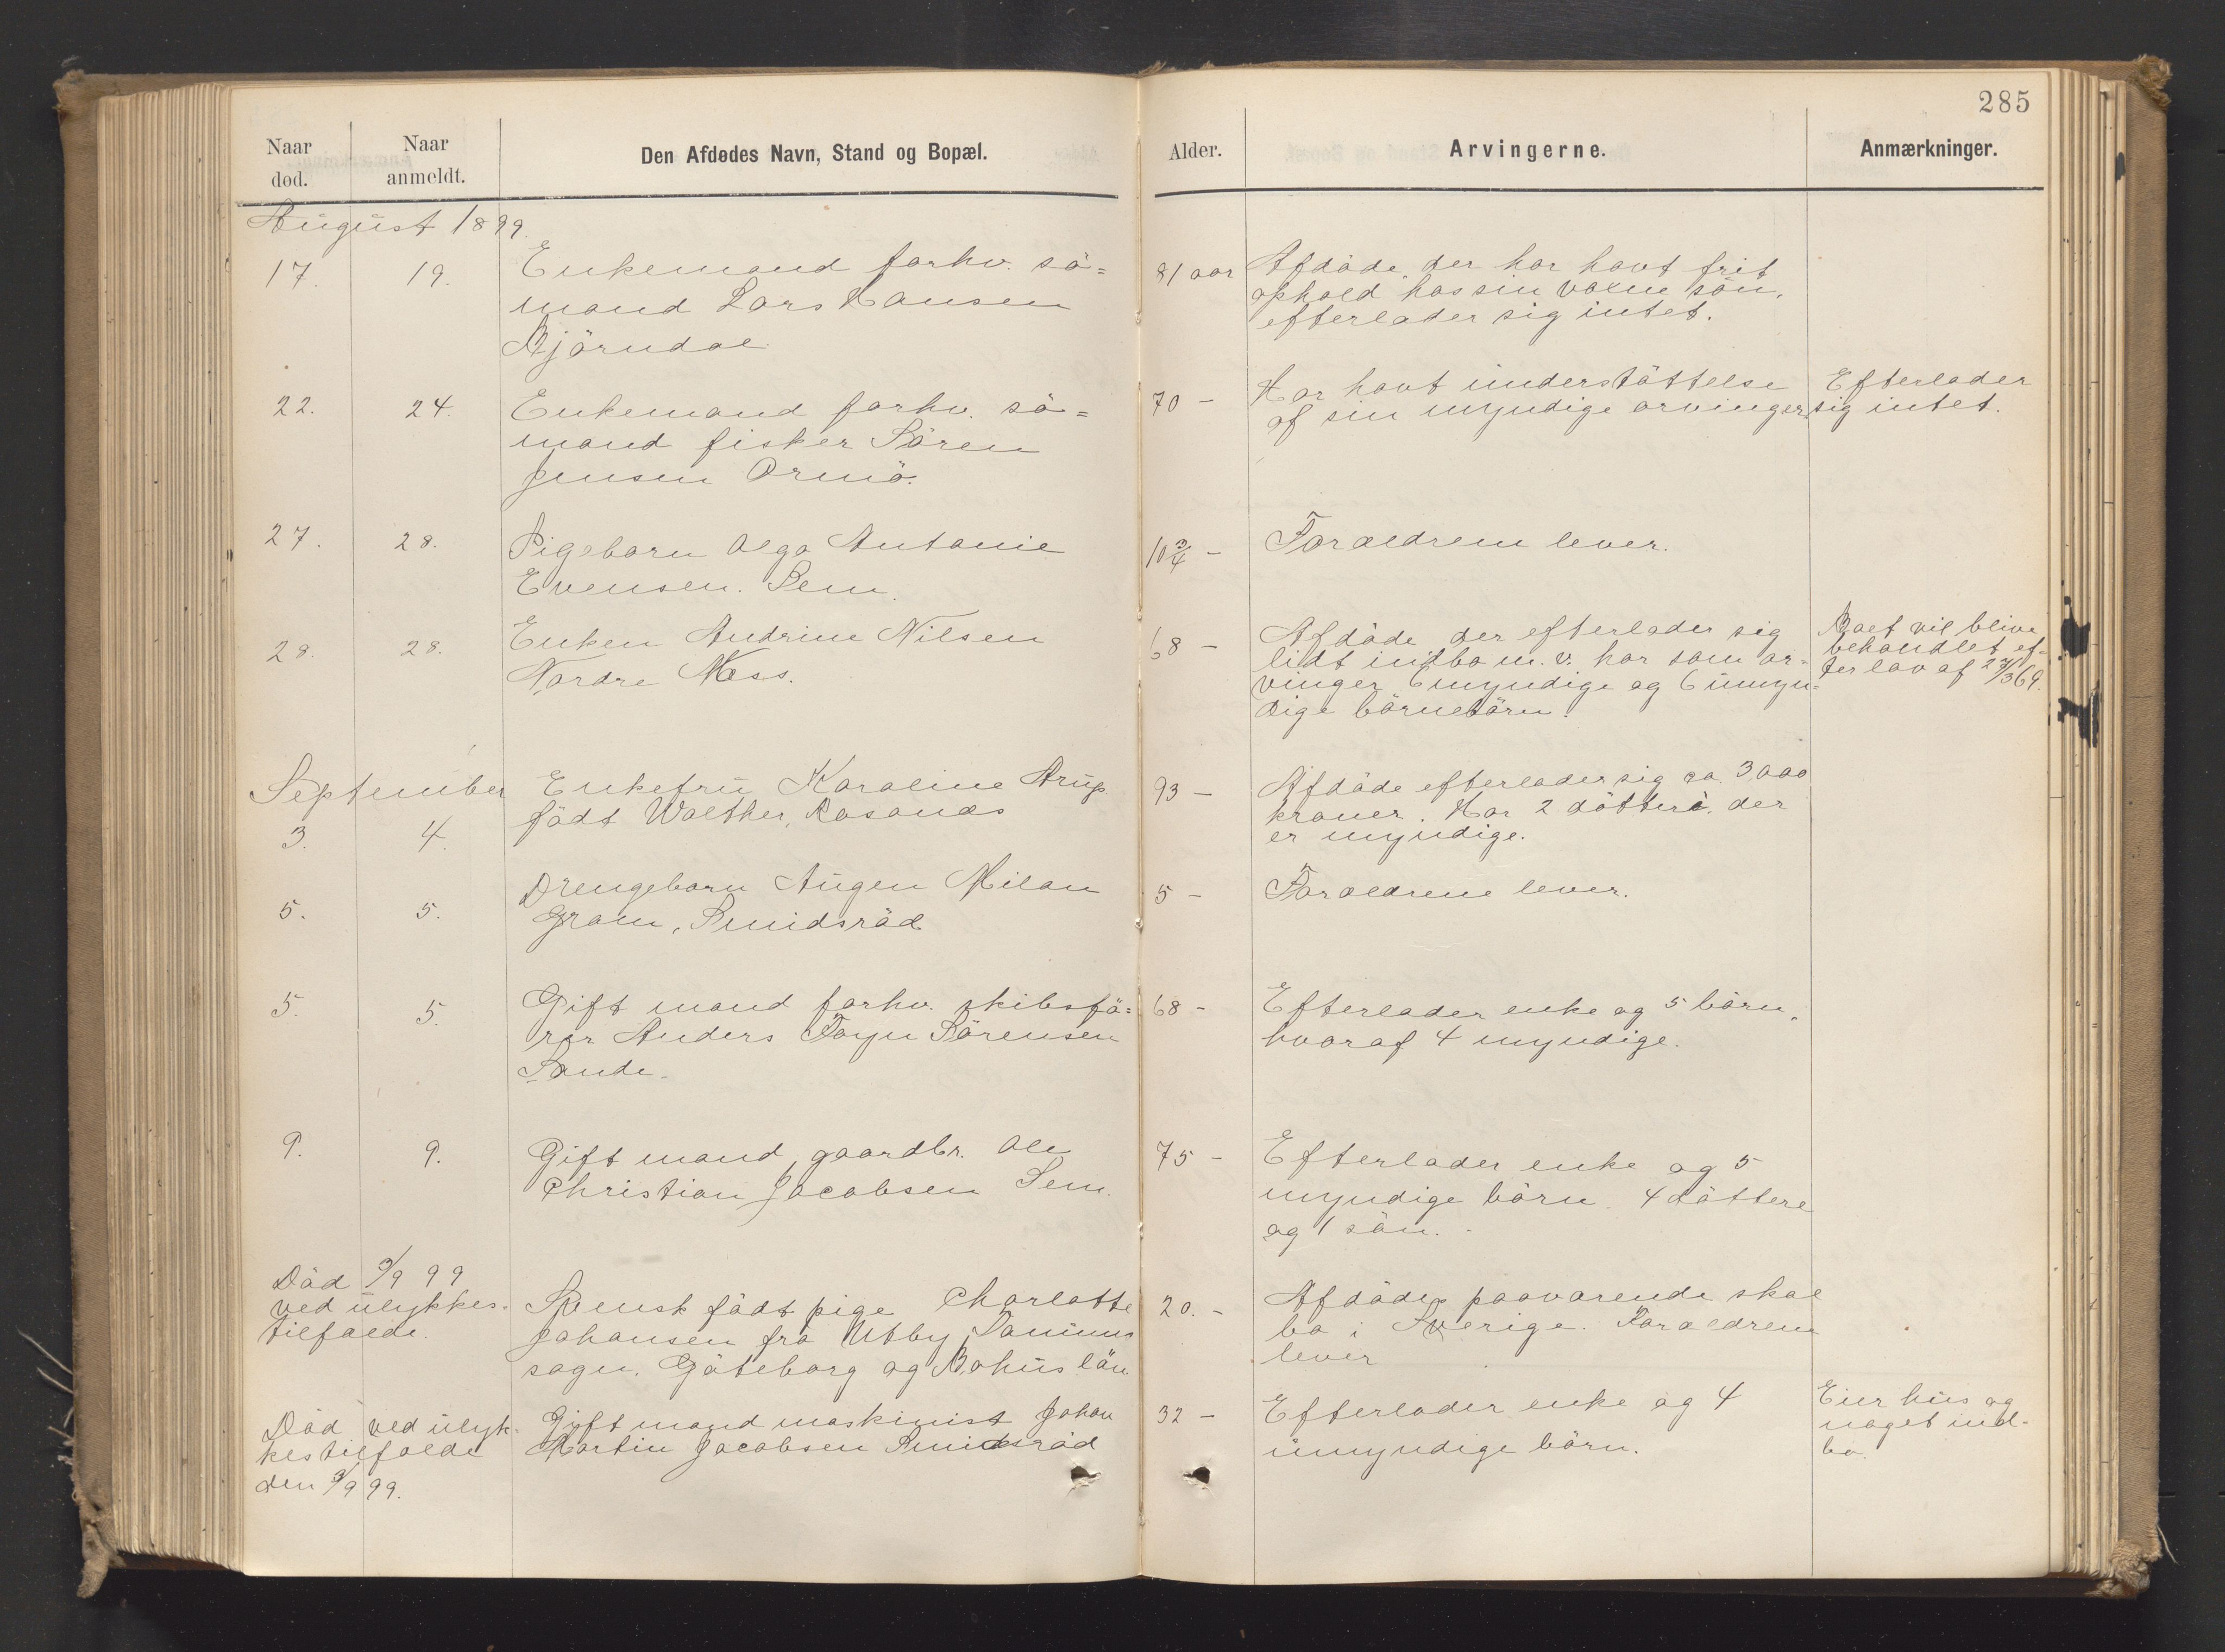 285
Naar død.
Naar anmeldt.
Den Afdødes Navn, Stand og Bopæl.
Alder.
Arvingerne.
Anmærkninger.
August 1899.
17. 19. Enkemand forhv. sö=
mand Lars Hansen
Björndal
81 aar
Afdöde, der har havt frit
ophold hos sin voxne sön,
efterlader sig intet.
22. 24. Enkemand forhv. sö=
mand fisker Sören
Jensen Ormö.
70 -
Har havt understöttelse
af sin myndige arvinger
Efterlader
sig intet.
27. 28. Pigebarn Olga Antonie
Evensen. Sem.
10 3/4 -
Forældrene lever.
28. 28. Enken Andrine Nilsen
Nordre Næss.
68 -
Afdöde der efterlader sig
lidt indbo m. v. har som ar=
vinger 6 myndige og 6 umyn=
dige börnebörn.
Boet vil blive
behandlet ef-
ter lov af 27/3 69.
September
3. 4. Enkefru Karoline Arup
födt Walther, Rosanes
93 -
Afdöde efterlader sig ca. 3000
kroner. Har 2 döttere, der
er myndige.
5. 5. Drengebarn Augen Milan
Gram, Smidsröd
5 -
Forældrene lever.
5. 5. Gift mand forhv. skibsfö=
rer Anders Foyn Sörensen
Sande.
68 -
Efterlader enke og 5 börn,
hvoraf 4 myndige.
9. 9. Gift mand, gaardbr. Ole
Christian Jacobsen Sem.
75 -
Efterlader enke og 5
myndige börn. 4 döttere
og 1 sön.
Död 9/9 99
ved ulykkes=
tilfælde.
Svensk födt pige Charlotte
Johansen fra Utby, Tanums
sogn. Göteborg og Bohus län
20. -
Afdödes paavarende skal
bo i Sverige. Forældrene
lever
Död ved ulyk-
kestilfælde
den 9/9 99.
Gift mand maskinist Johan
Martin Jacobsen Smidsröd
32 -
Efterlader enke og 4
umyndige börn.
Eier hus og
noget ind-
bo.